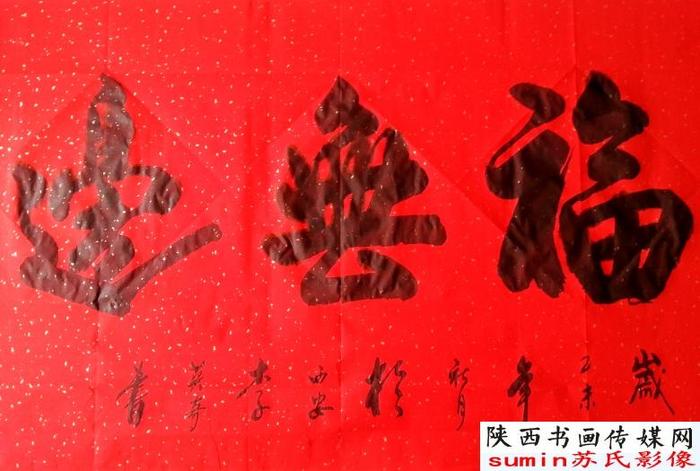 福無邊
歲乙未年於西安李書
陕西书画传媒网
sumin苏氏影像